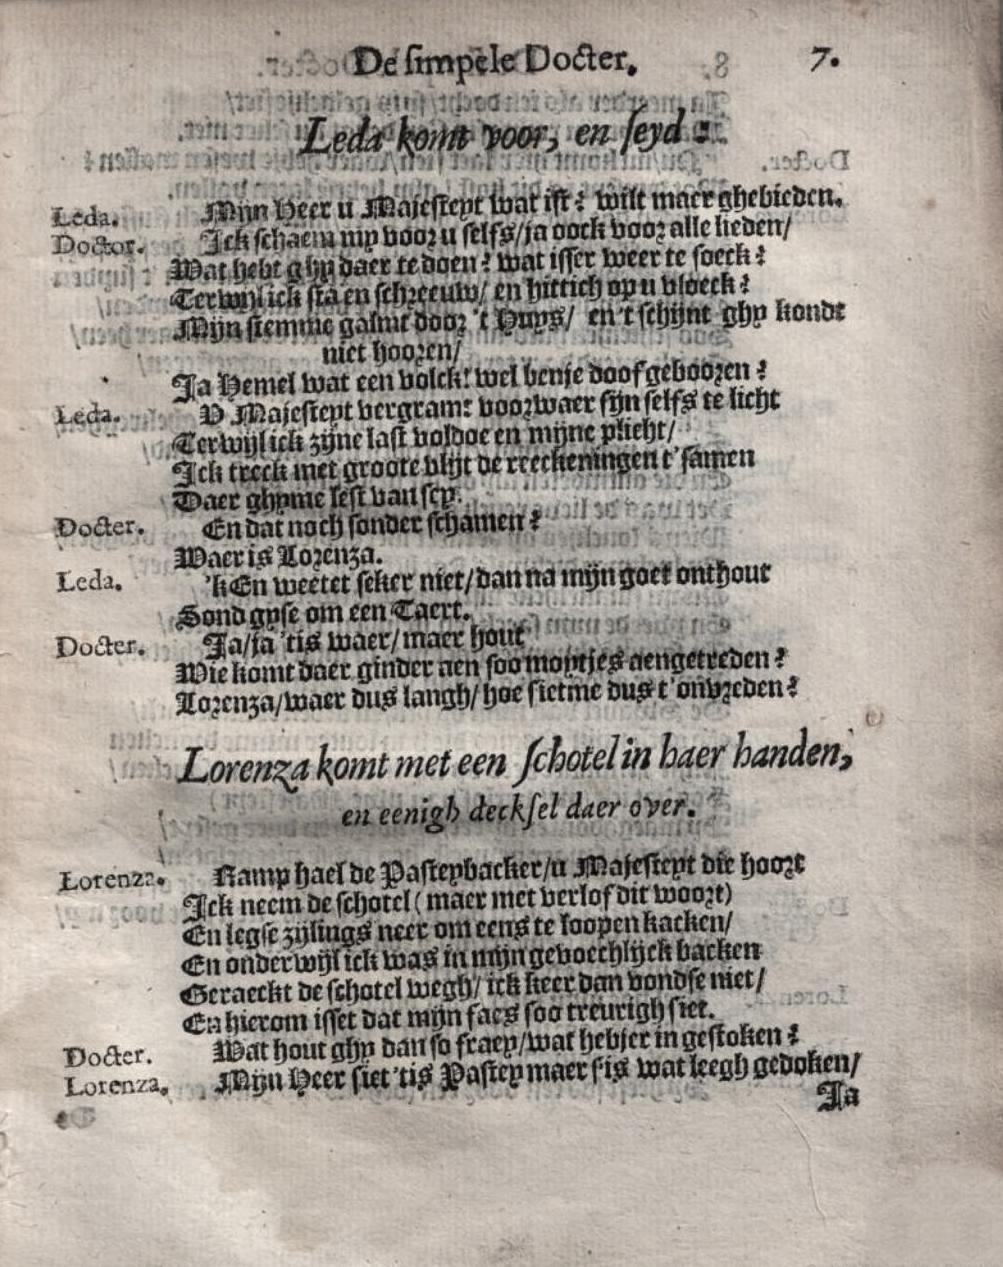 De simpele Docter. 7.
Leda komt voor, en seyd:
Leda. Mijn Heer u Majesteyt wat ist? wilt maer ghebieden.
Doctor. Ick schaem my voor u selfs/ja oock voor alle lieden/
Wat hebt ghy daer te doen? wat isser weer te soeck?
Terwijl ick sta en schreeuw/ en hittich op u vloeck?
Mijn stemme galmt door 't Huys/ en 't schijnt ghy kondt
niet hooren/
Ja Hemel wat een volck! wel benje doof gebooren?
Leda. V Majesteyt vergramt voorwaer sijn selfs te licht
Terwijl ick zijne last voldoe en mijne plicht/
Ick treck met groote vlijt de reeckeningen t'samen
Daer ghy me lest van sey.
Docter. En dat noch sonder schamen?
Waer is Lorenza.
Leda. 'k En weetet seker niet/dan na mijn goet onthout
Sond gyse om een Taert.
Docter. Ja/ja 'tis waer/maer hout
Wie komt daer ginder aen soo moytjes aengetreden?
Lorenza/waer dus langh/ hoe sietme dus t'onvreden?
Lorenza komt met een schotel in haer handen,
en eenigh decksel daer over.
Lorenza. Ramp hael de Pasteybacker/u Majesteyt die hoort
Ick neem de schotel (maer met verlof dit woort)
En legse zijlings neer om eens te loopen kacken/
En onderwijl ick was in mijn gevoechlijck backen
Geraeckt de schotel wegh/ ick keer dan vondse niet/
En hierom isset dat mijn faes soo treurigh siet.
Docter. Wat hout ghy dan so fraey/wat hebjer in gestoken?
Lorenza. Mijn Heer siet 'tis Pastey maer s'is wat leegh gedoken/
Ja